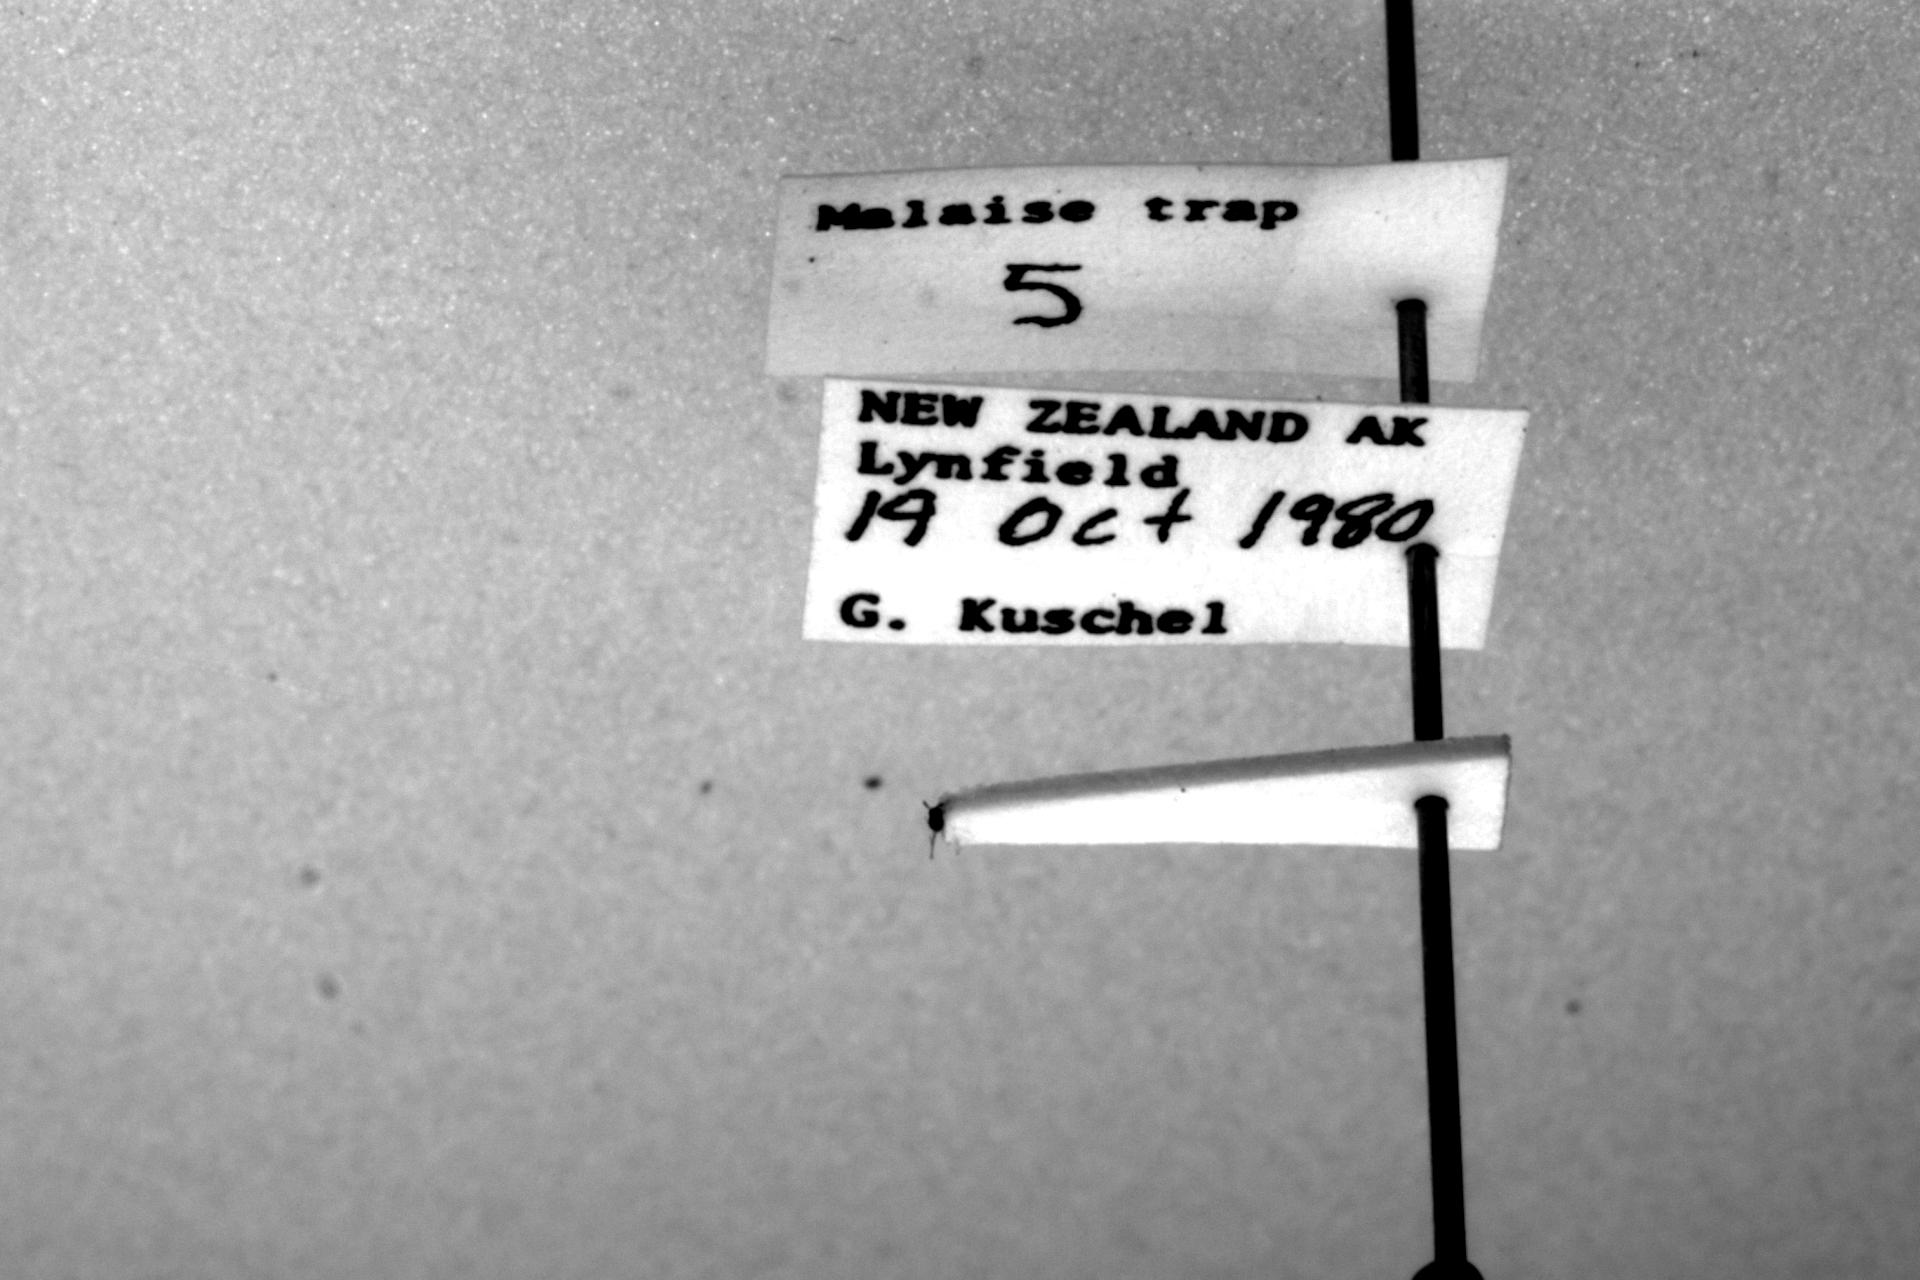 Malaise trap
5
NEW ZEALAND AK
Lynfield
19 Oct 1980
G. Kuschel